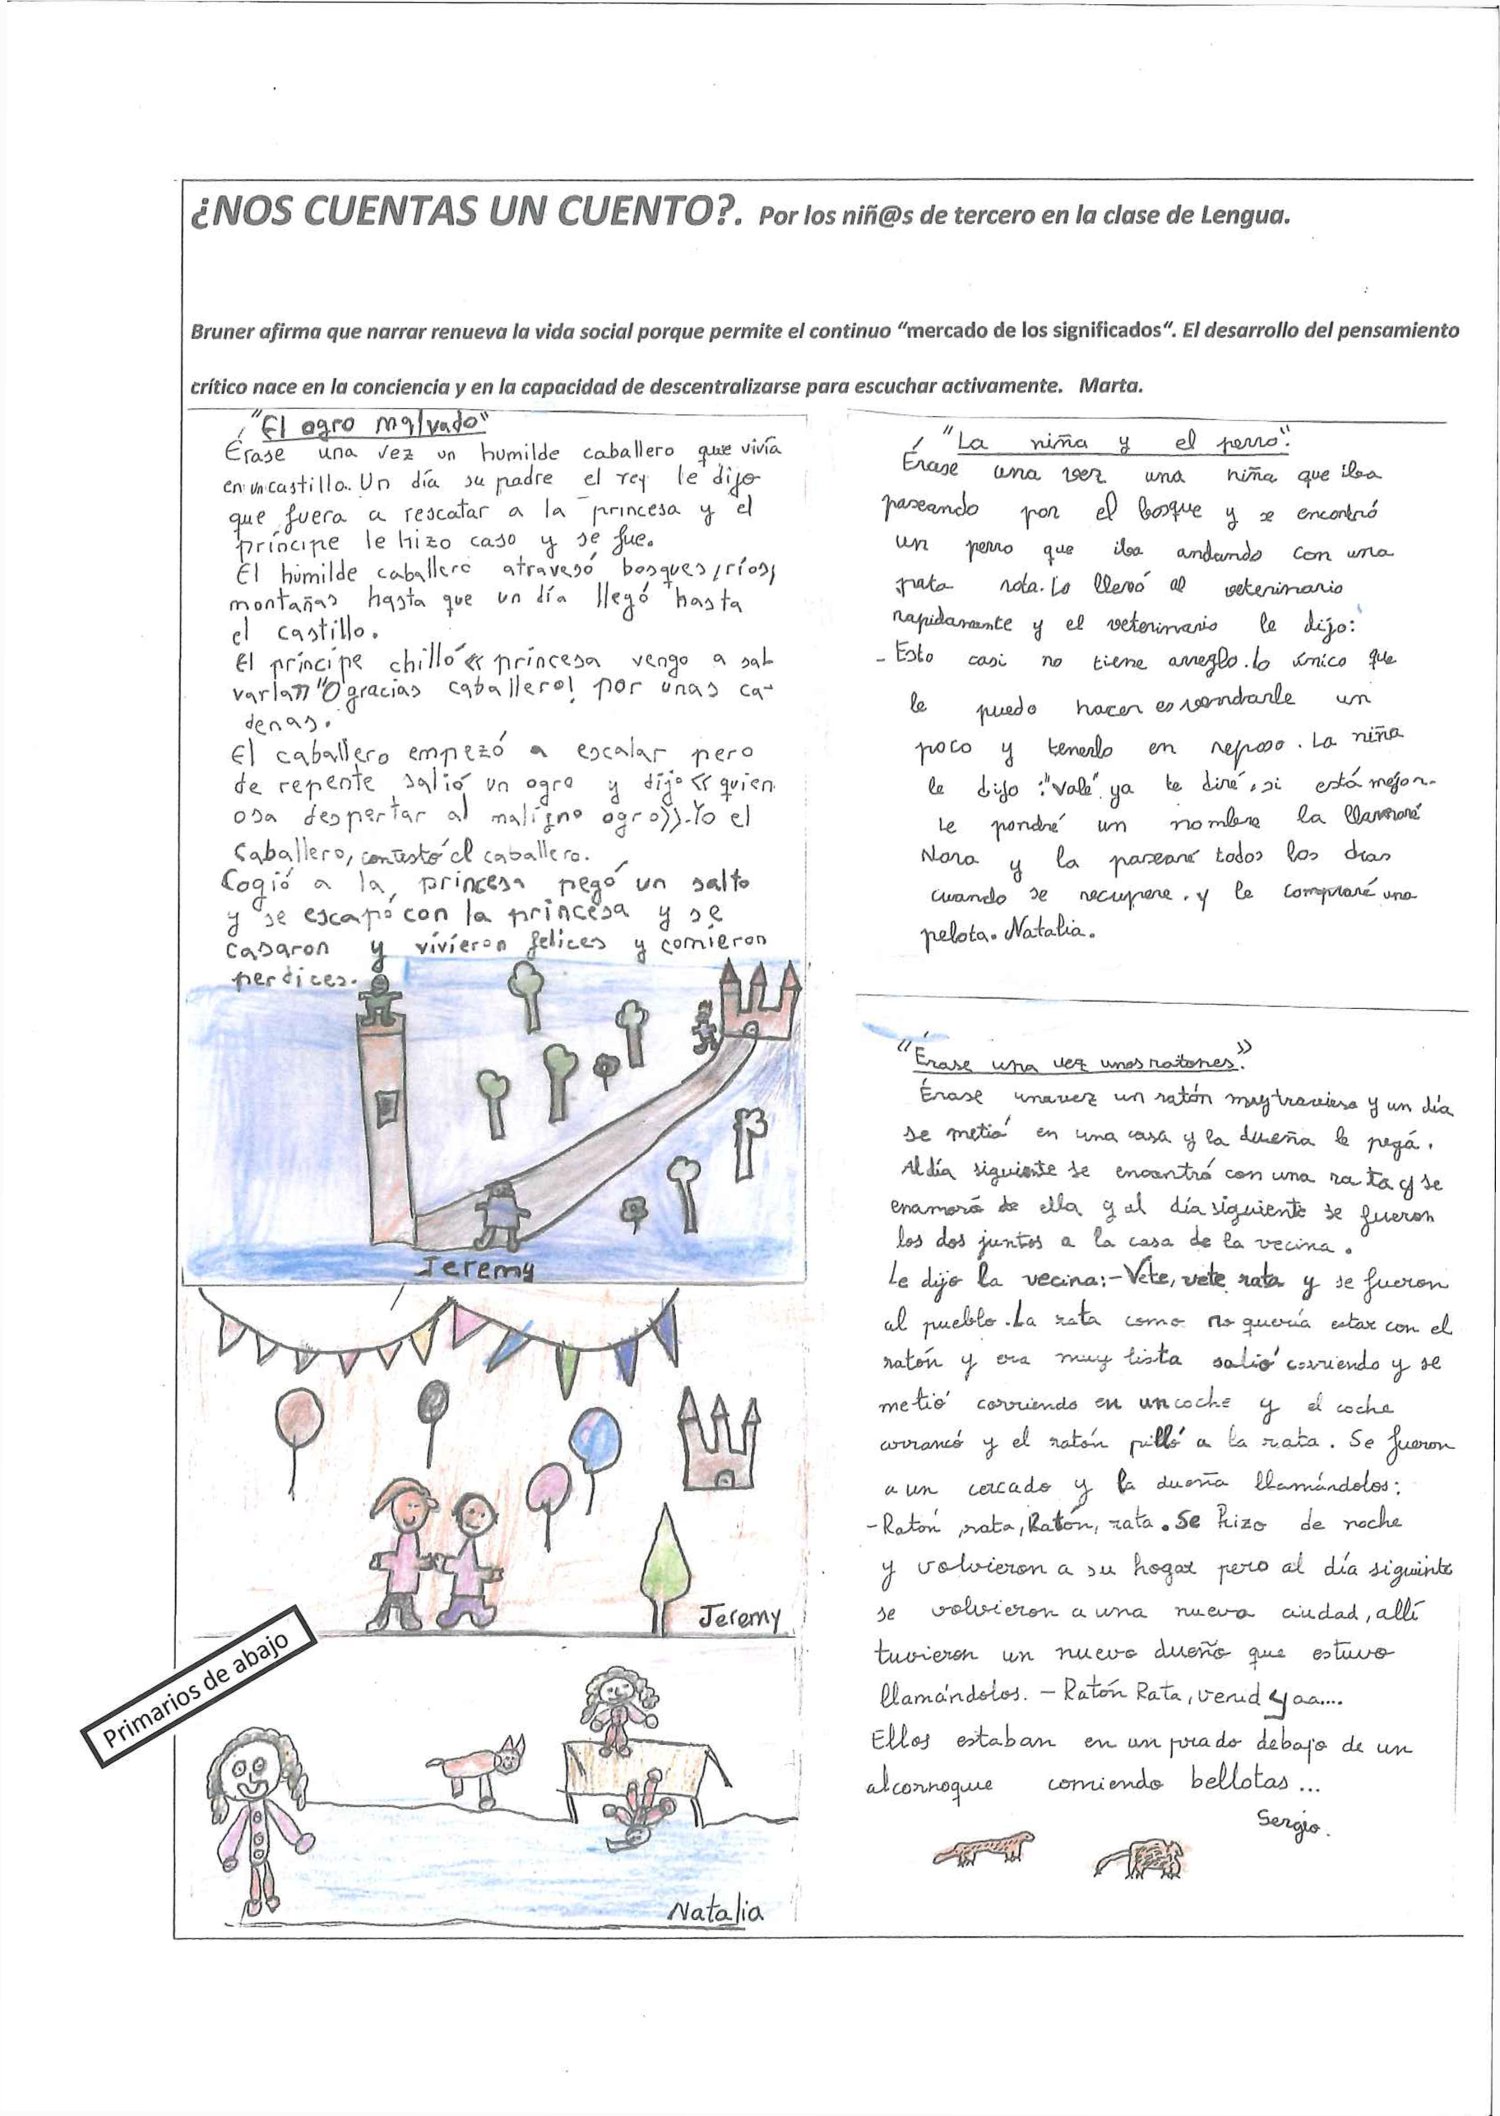 ¿NOS CUENTAS UN CUENTO?. Por los niñ@s de tercero en la clase de Lengua.
Bruner afirma que narrar renueva la vida social porque permite el continuo “mercado de los significados“. El desarrollo del pensamiento
crítico nace en la conciencia y en la capacidad de descentralizarse para escuchar activamente. Marta.
"El ogro malvado"
Érase una vez un humilde caballero que vivía
en un castillo. Un día su padre el rey le dijo
que fuera a rescatar a la princesa y el
príncipe le hizo caso y se fue.
El húmilde caballero atravesó bosques, ríos,
montañas hasta que un día llegó hasta
el castillo.
El príncipe chilló « princesa vengo a sal
varla» "O gracias caballero! por unas ca-
denas.
El caballero empezó a escalar pero
de repente salió un ogro y dijo « quien
osa despertar al maligno ogro». Yo el
Caballero, contestó el caballero.
Cogió a la princesa pegó un salto
y se escapó con la princesa y se
casaron y vivieron felices y comieron
perdices.
Jeremy
Jeremy
Primarios de abajo
Natalia
"La niña y el perro".
Érase una vez una niña que iba
paseando por el bosque y se encontró
un perro que iba andando con una
pata rota. Lo llevó al veterinario
rapidamente y el veterinario le dijo:
- Esto casi no tiene arreglo. lo único que
le puedo hacer es vendarle un
poco y tenerlo en reposo. La niña
le dijo: "Vale" ya te diré, si está mejor.
Le pondré un nombre la llamaré
Nora y la pasearé todos los días
cuando se recupere. y le compraré una
pelota. Natalia.
"Érase una vez unos ratones".
Érase una vez un ratón muy travieso y un día
se metió en una casa y la dueña le pegá.
Al día siguiente se encontró con una rata y se
enamoró de ella y al día siguiente se fueron
los dos juntos a la casa de la vecina.
Le dijo la vecina:- Vete, vete rata y se fueron
al pueblo. La rata como no quería estar con el
ratón y era muy lista salió corriendo y se
metió corriendo en un coche y el coche
arrancó y el ratón pilló a la rata. Se fueron
a un cercado y la dueña llamándolos:
- Ratón, rata, Ratón, rata. Se hizo de noche
y volvieron a su hogar pero al día siguiente
se volvieron a una nueva ciudad, allí
tuvieron un nuevo dueño que estuvo
llamándolos. - Ratón Rata, venid yaa....
Ellos estaban en un prado debajo de un
alcornoque comiendo bellotas...
Sergio.